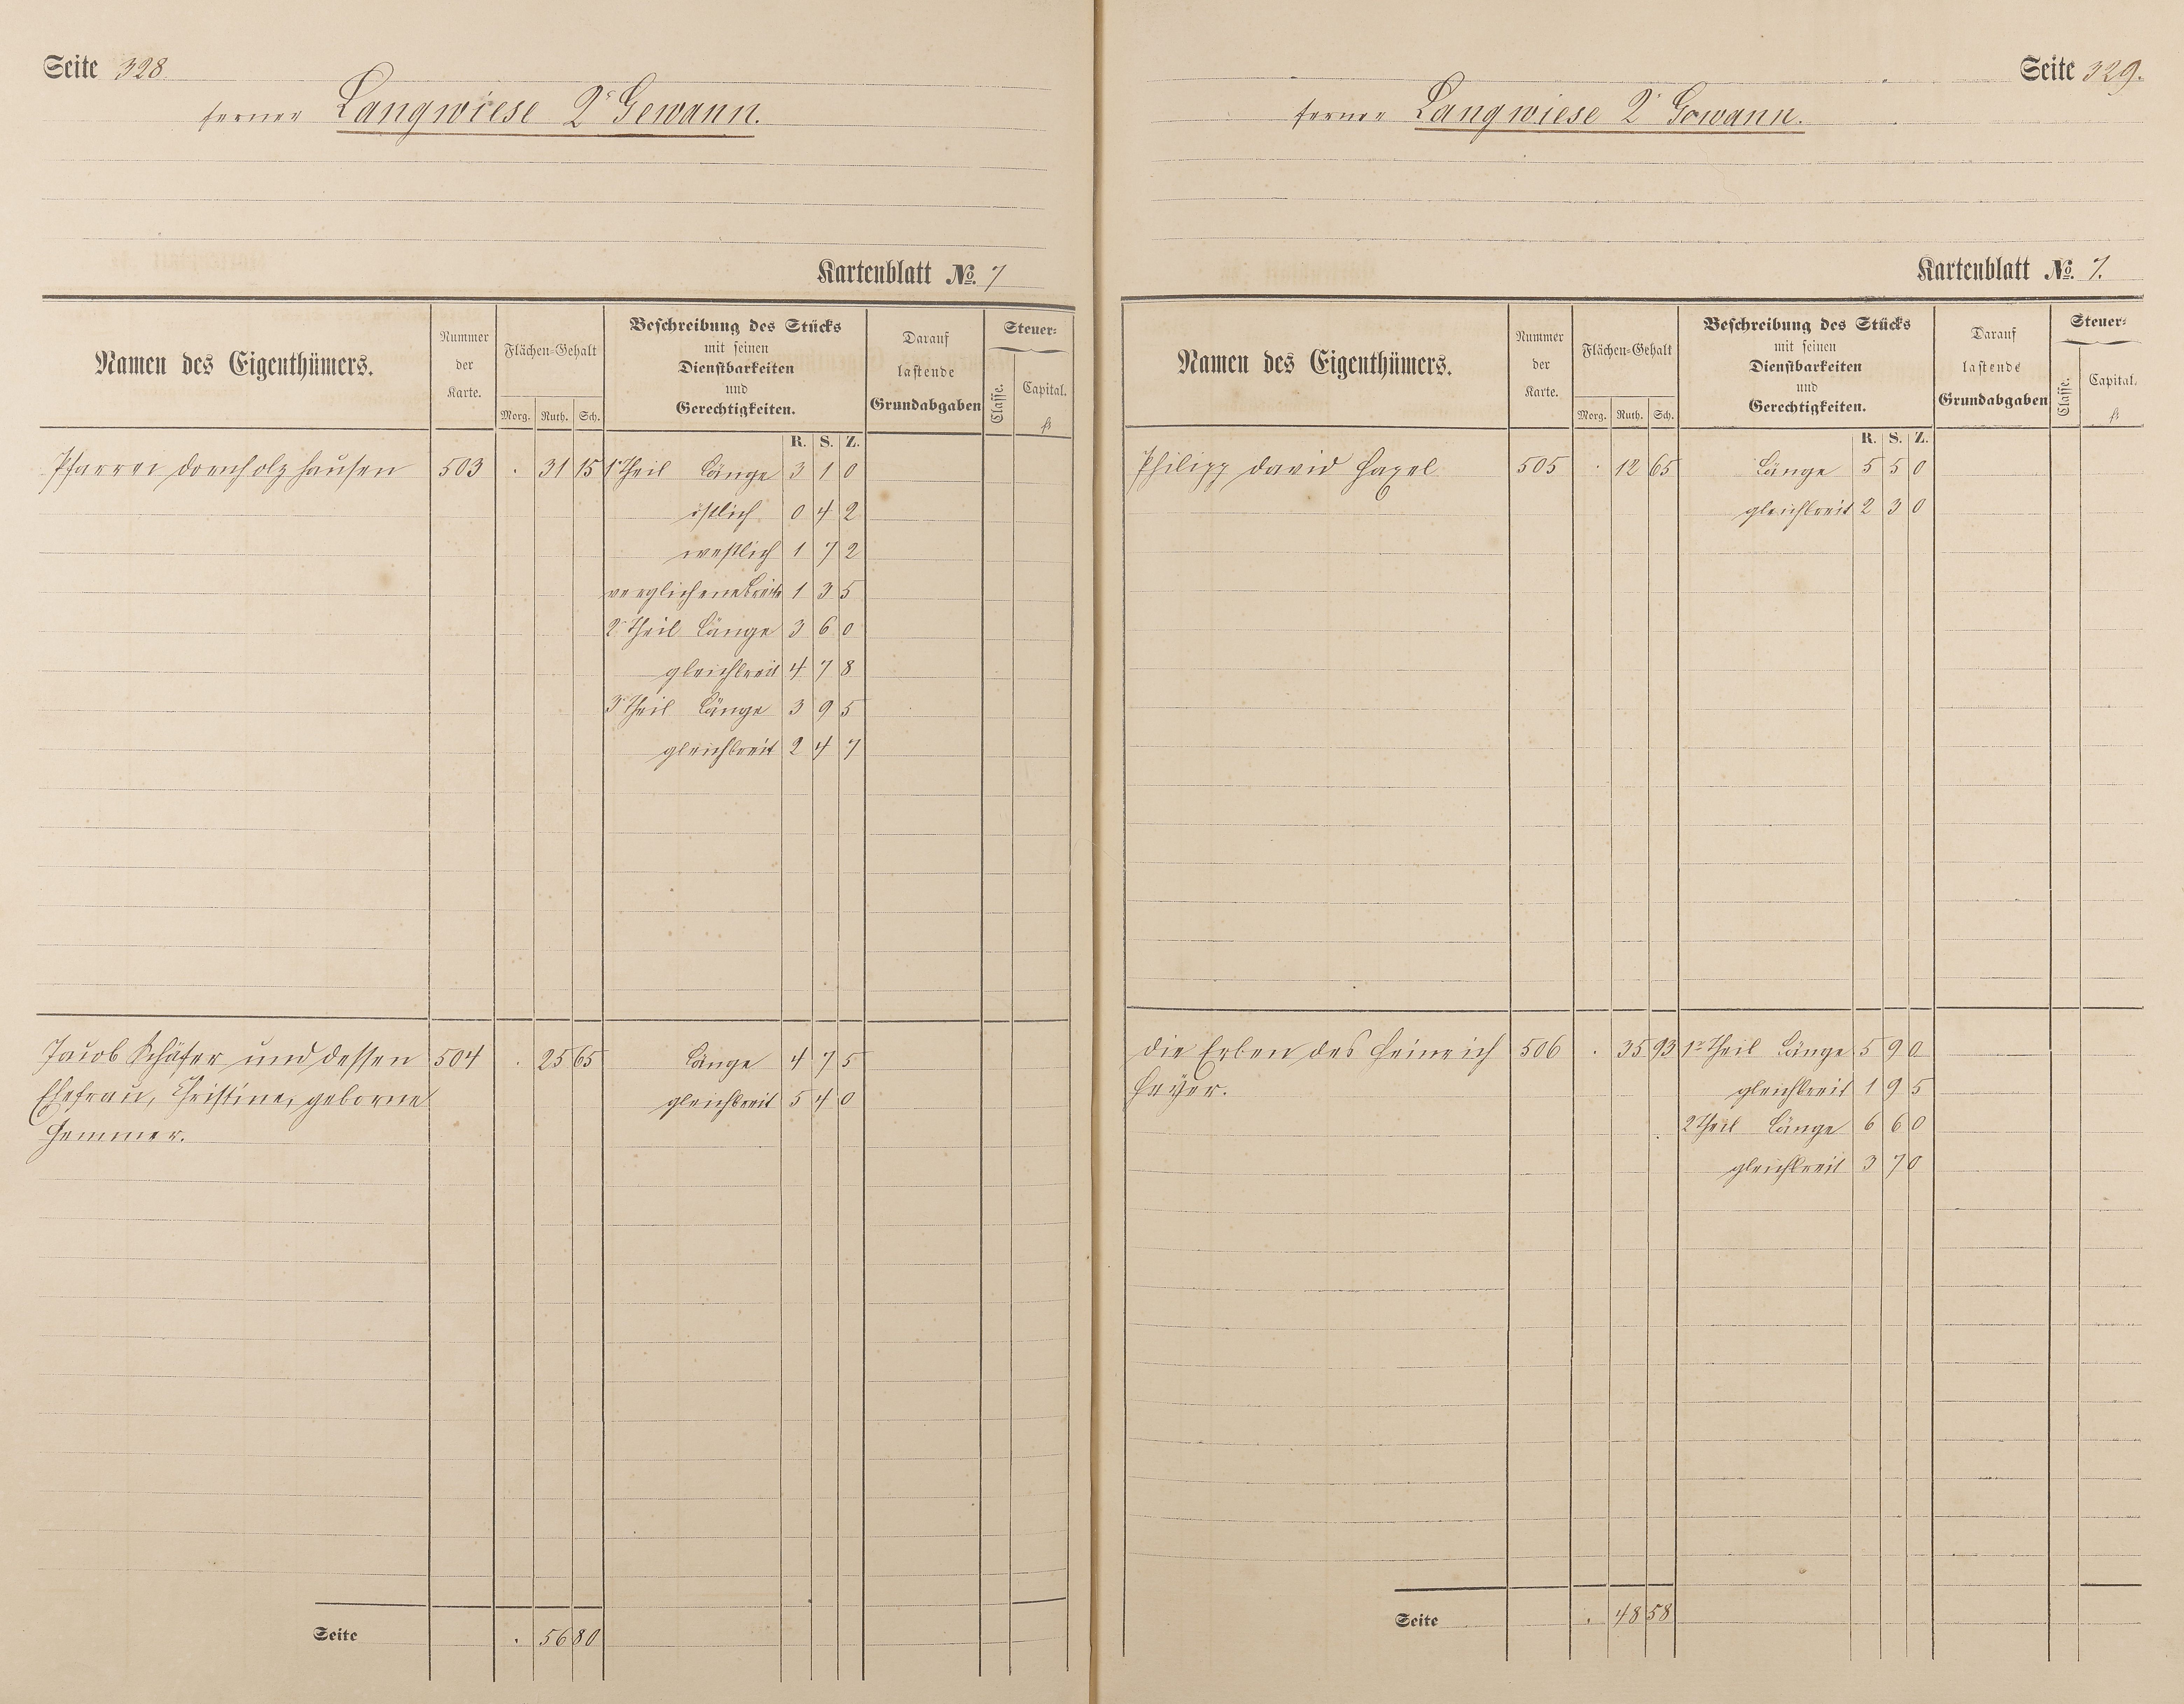 Seite 328
ferner Langwiese 2r Gewann.
Kartenblatt No. 7
Namen des Eigenthümers.
Nummer der Karte.
Flächen-Gehalt
Morg. Ruth. Sch.
Beschreibung des Stücks
mit seinen
Dienstbarkeiten
und
Gerechtigkeiten.
Darauf
lastende
Grundabgaben
Steuer-
Classe.
Capital.
fl.
R. S. Z.
Pfarrei Dornholzhausen 503 . 31 15 1r Theil Länge 3 1 0
östlich 0 4 2
westlich 1 7 2
verglichene Breite 1 3 5
2r Theil Länge 3 6 0
gleichbreit 4 7 8
3r Theil Länge 3 9 5
gleichbreit 2 4 7
Jacob Schäfer und dessen 504 . 25 65 Länge 4 7 5
Ehefrau, Christine, geborne gleichbreit 5 4 0
Hemmer.
Seite . 56 80
Seite 329.
ferner Langwiese 2r Gewann.
Kartenblatt No. 7.
Namen des Eigenthümers.
Nummer der Karte.
Flächen-Gehalt
Morg. Ruth. Sch.
Beschreibung des Stücks
mit seinen
Dienstbarkeiten
und
Gerechtigkeiten.
Darauf
lastende
Grundabgaben
Steuer-
Classe.
Capital.
fl.
R. S. Z.
Philipp David 505 . 12 65 Länge 5 5 0
gleichbreit 2 3 0
Die Erben des Heinrich 506 . 35 93 1r Theil Länge 5 9 0
gleichbreit 1 9 5
2r Theil Länge 6 6 0
gleichbreit 3 7 0
Seite . 48 58